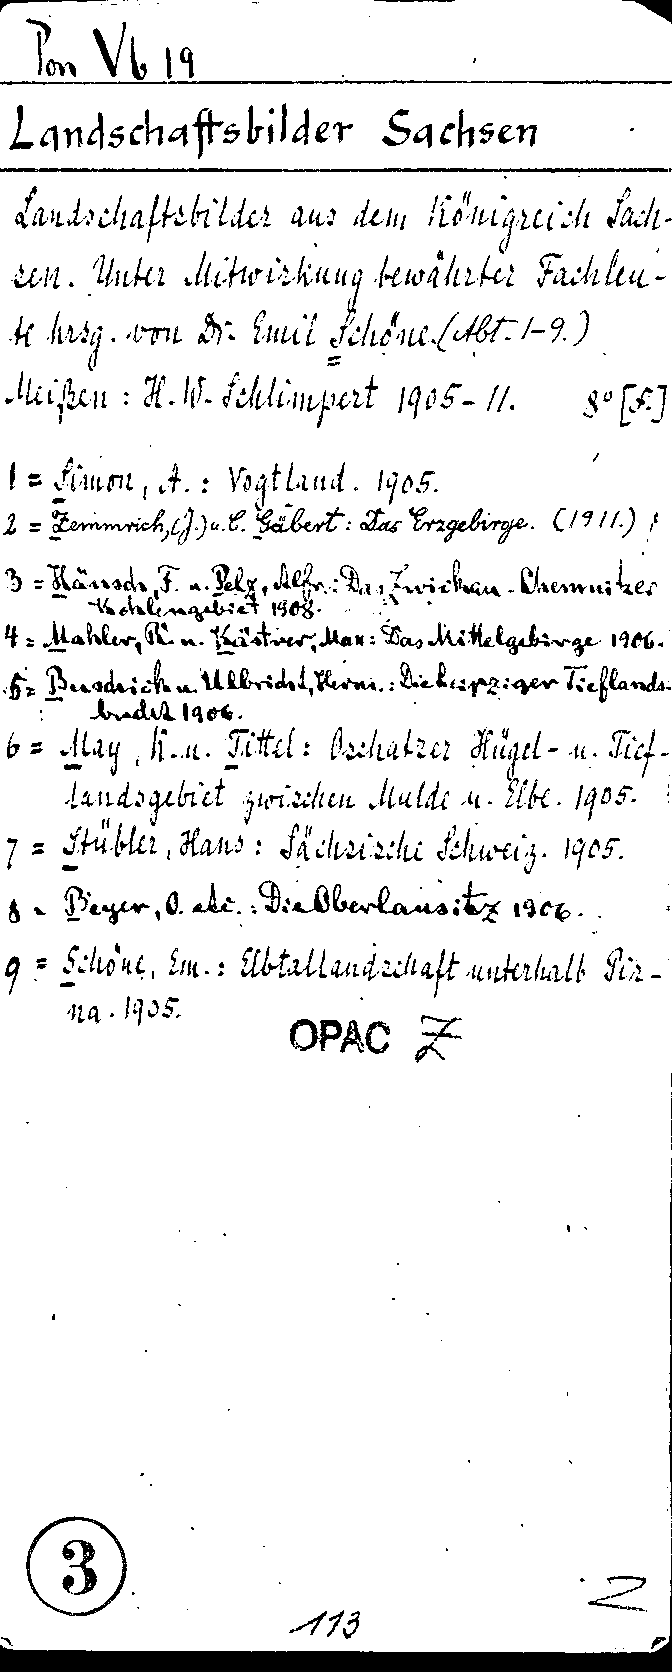 Pon Vb 19
Landschaftsbilder Sachsen
Landschaftsbilder aus dem Königreich Sach-
sen. Unter Mitwirkung bewährter Fachleu-
te hrsg. von Dr. Emil Schöne. (Abt. 1-9.)
Meißen: H. W. Schlimpert 1905-11. 8° [F.]
1 = Simon, A.: Vogtland. 1905.
2 = Zemmrich, (J.) u. C. Gäbert: Das Erzgebirge. (1911.)
3 = Hänsch, F. u. Pelz, Alfr.: Das Zwickau-Chemnitzer
Kohlengebiet 1908.
4 = Mahler, K. u. Kästner, Max: Das Mittelgebirge 1906.
5 = u. Ulbricht, Herm.: Die Leipziger Tieflands-
bucht 1906.
6 = May, K. u. Tittel: Oschatzer Hügel- u. Tief-
landsgebiet zwischen Mulde u. Elbe. 1905.
7 = Stübler, Hans: Sächsische Schweiz. 1905.
8 = Beyer, O. etc.: Die Oberlausitz 1906.
9 = Schöne, Em.: Elbtallandschaft unterhalb Pir-
na. 1905.
OPAC Z
3
113